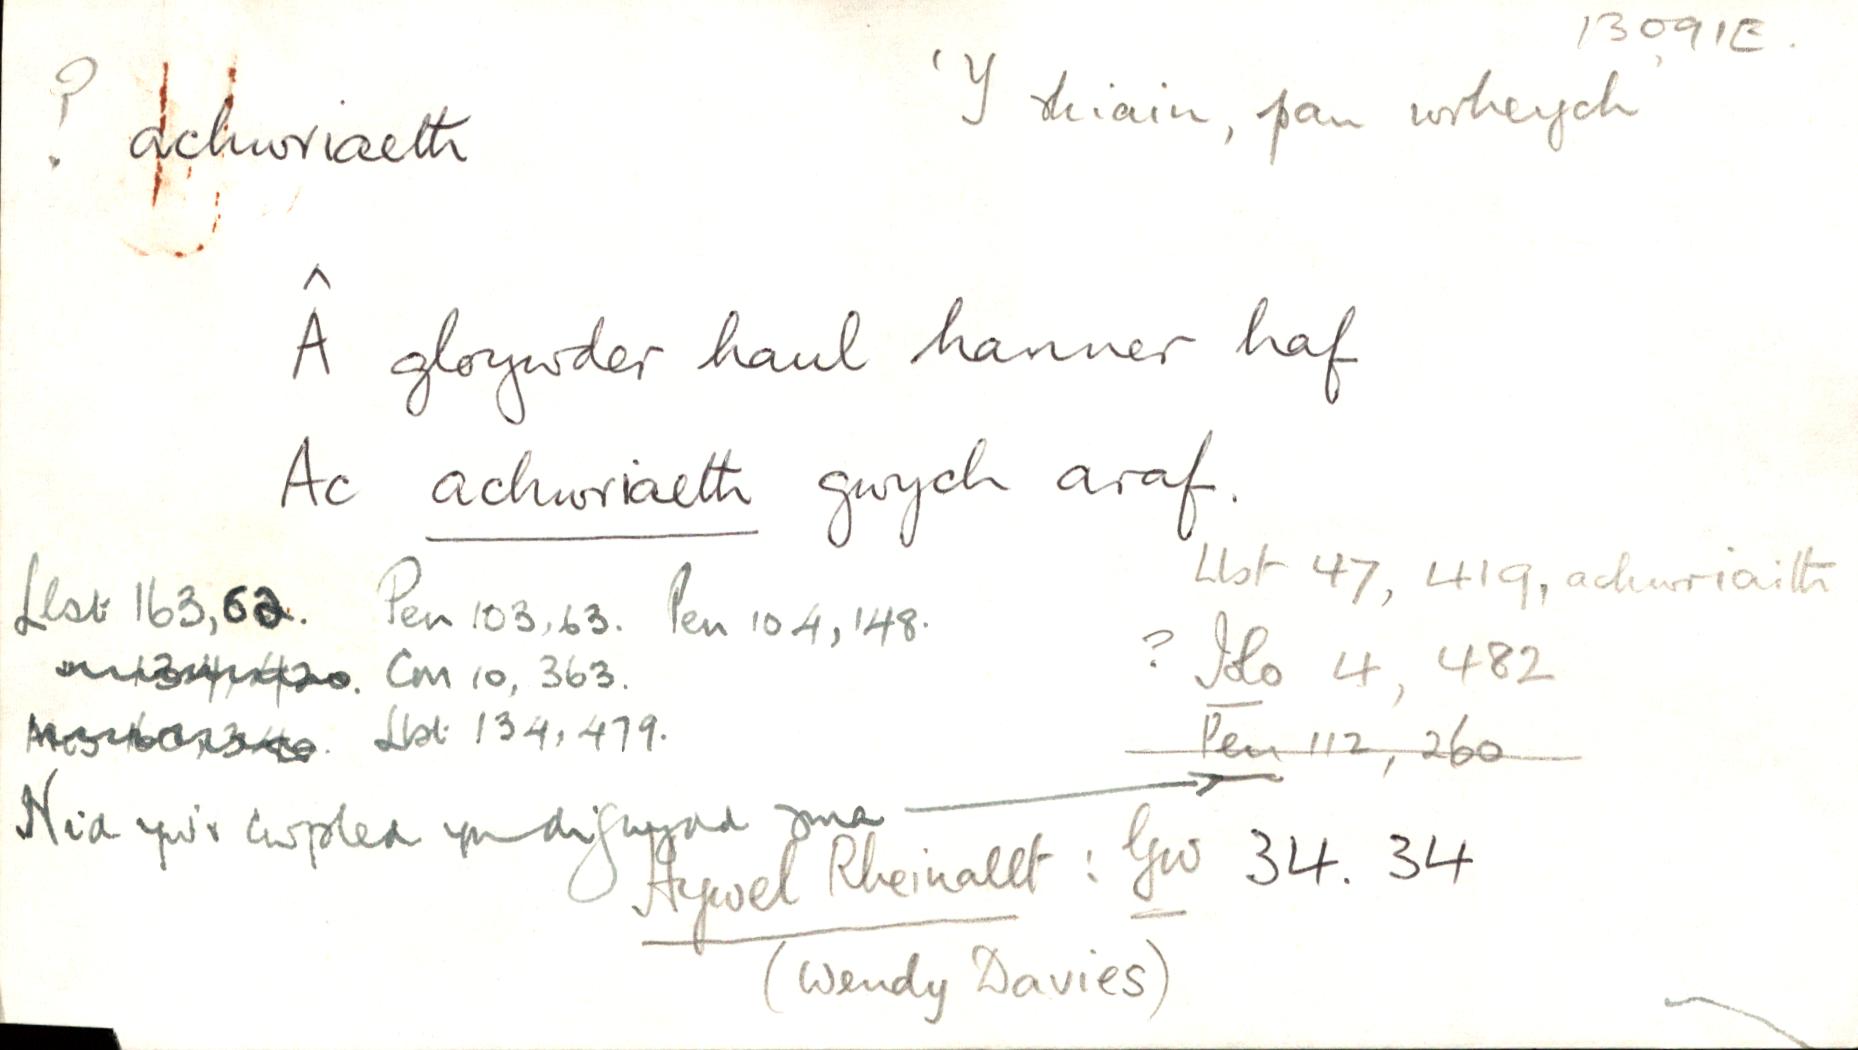 13091E.
? achwriaeth
'Y rhiain, pan wrheych'
Â gloywder haul hanner haf
Ac achwriaeth gwych araf.
Llst 47, 419, achwriaith
Llst 163, 62. Pen 103, 63. Pen 104, 148.
? Iolo 4, 482
134, 420. Cm 10, 363.
Llst 134, 479.
Pen 112, 260
Nid yw'r cwpled yn digwydd yma
Hywel Rheinallt : Gw 34. 34
(Wendy Davies)